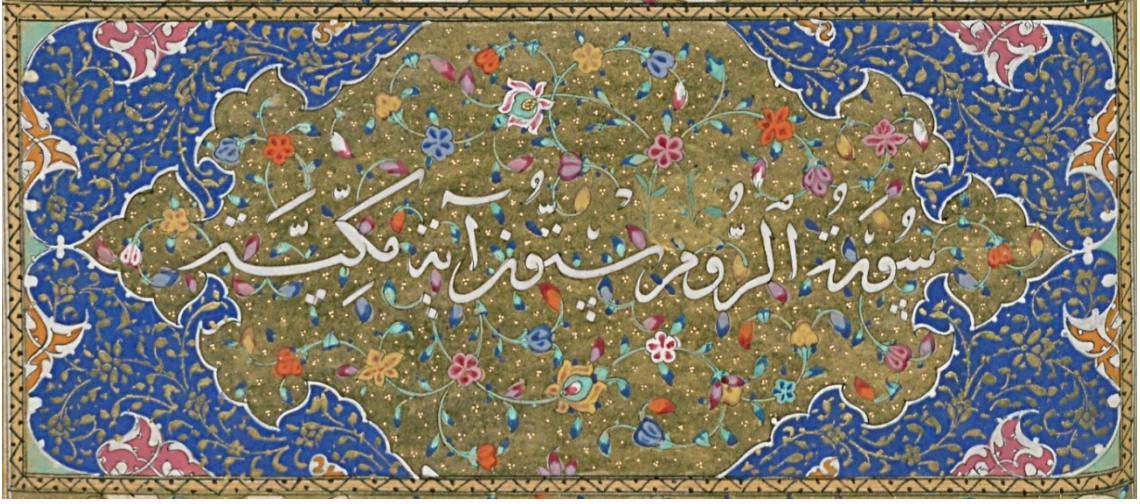 سُورَةُ الرُّومِ سِتُّونَ آيَةً مَكِّيَّة